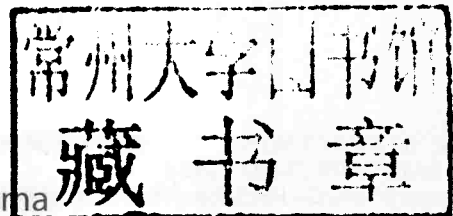 常州大学图书馆
藏书章
ma